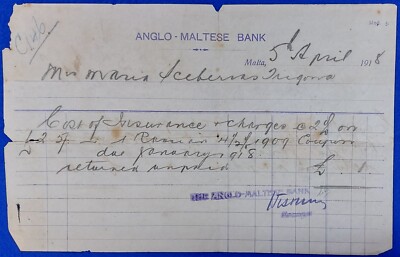 C126
ANGLO-MALTESE BANK
Malta, 5th April 1918
Mrs Maria Trigona
Cost of Insurance & charges @ 2% on
Russian 4½% 1909 Coupon
due January 1918
returned unpaid £ 1
THE ANGLO-MALTESE BANK